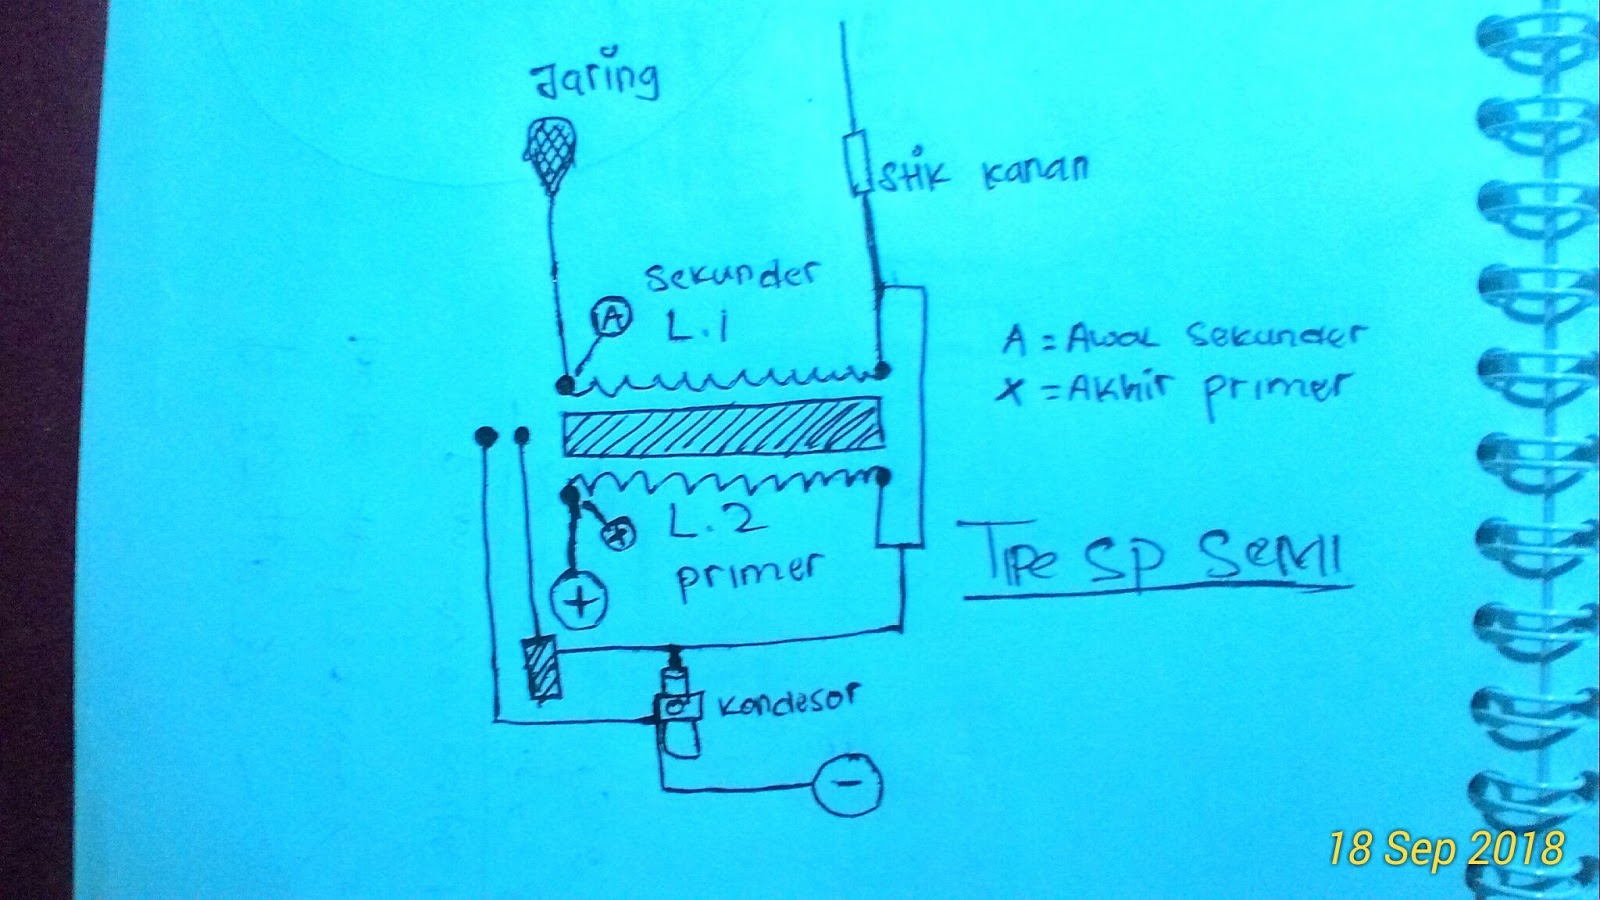 Jaring
Stik Kanan
Sekunder
A
L.1
A = AwaL Sekunder
X = AKhir primer
X
L.2
primer
+
Tipe SP SeMI
Kondesor
-
18 Sep 2018